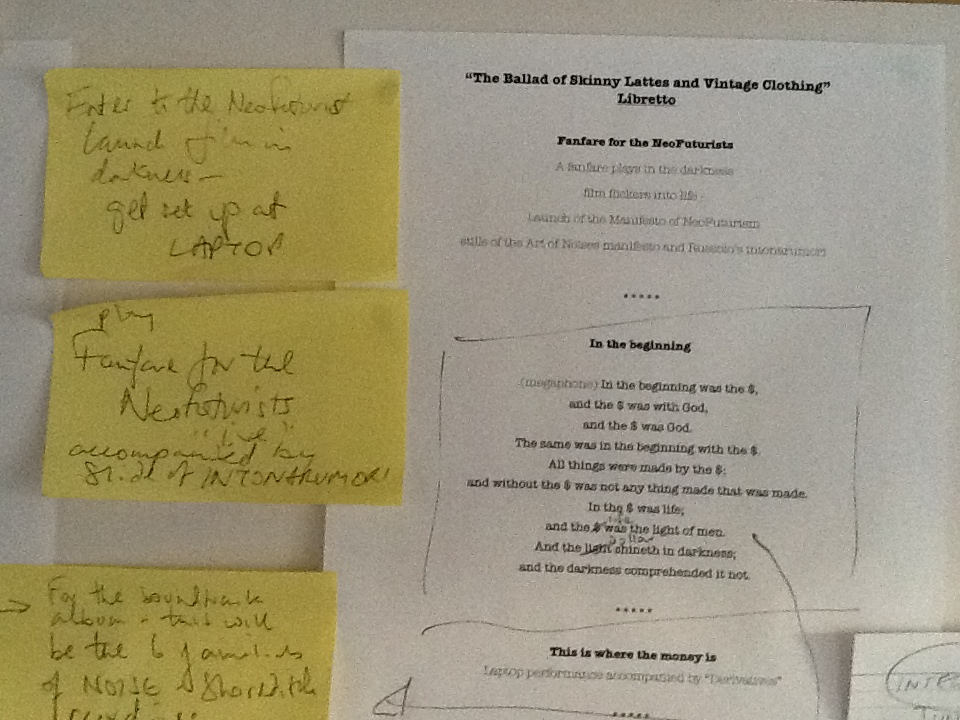 Enter to the Neofuturist
launch film in
darkness —
get set up at
LAPTOP
play
Fanfare for the
Neofuturists
"live"
accompanied by
Slide of INTONARUMORI
For the soundtrack
album - this will
be the 6 families
of NOISE & Shoreditch
"The Ballad of Skinny Lattes and Vintage Clothing"
Libretto
Fanfare for the NeoFuturists
A fanfare plays in the darkness
film flickers into life
Launch of the Manifesto of NeoFuturism
stills of the Art of Noises manifesto and Russolo's intonarumori
*****
In the beginning
(megaphone) In the beginning was the $,
and the $ was with God,
and the $ was God.
The same was in the beginning with the $.
All things were made by the $;
and without the $ was not any thing made that was made.
In the $ was life;
and the $ was the light of men.
dollar
And the light shineth in darkness;
and the darkness comprehended it not.
*****
This is where the money is
Laptop performance accompanied by "Derivatives"
*****